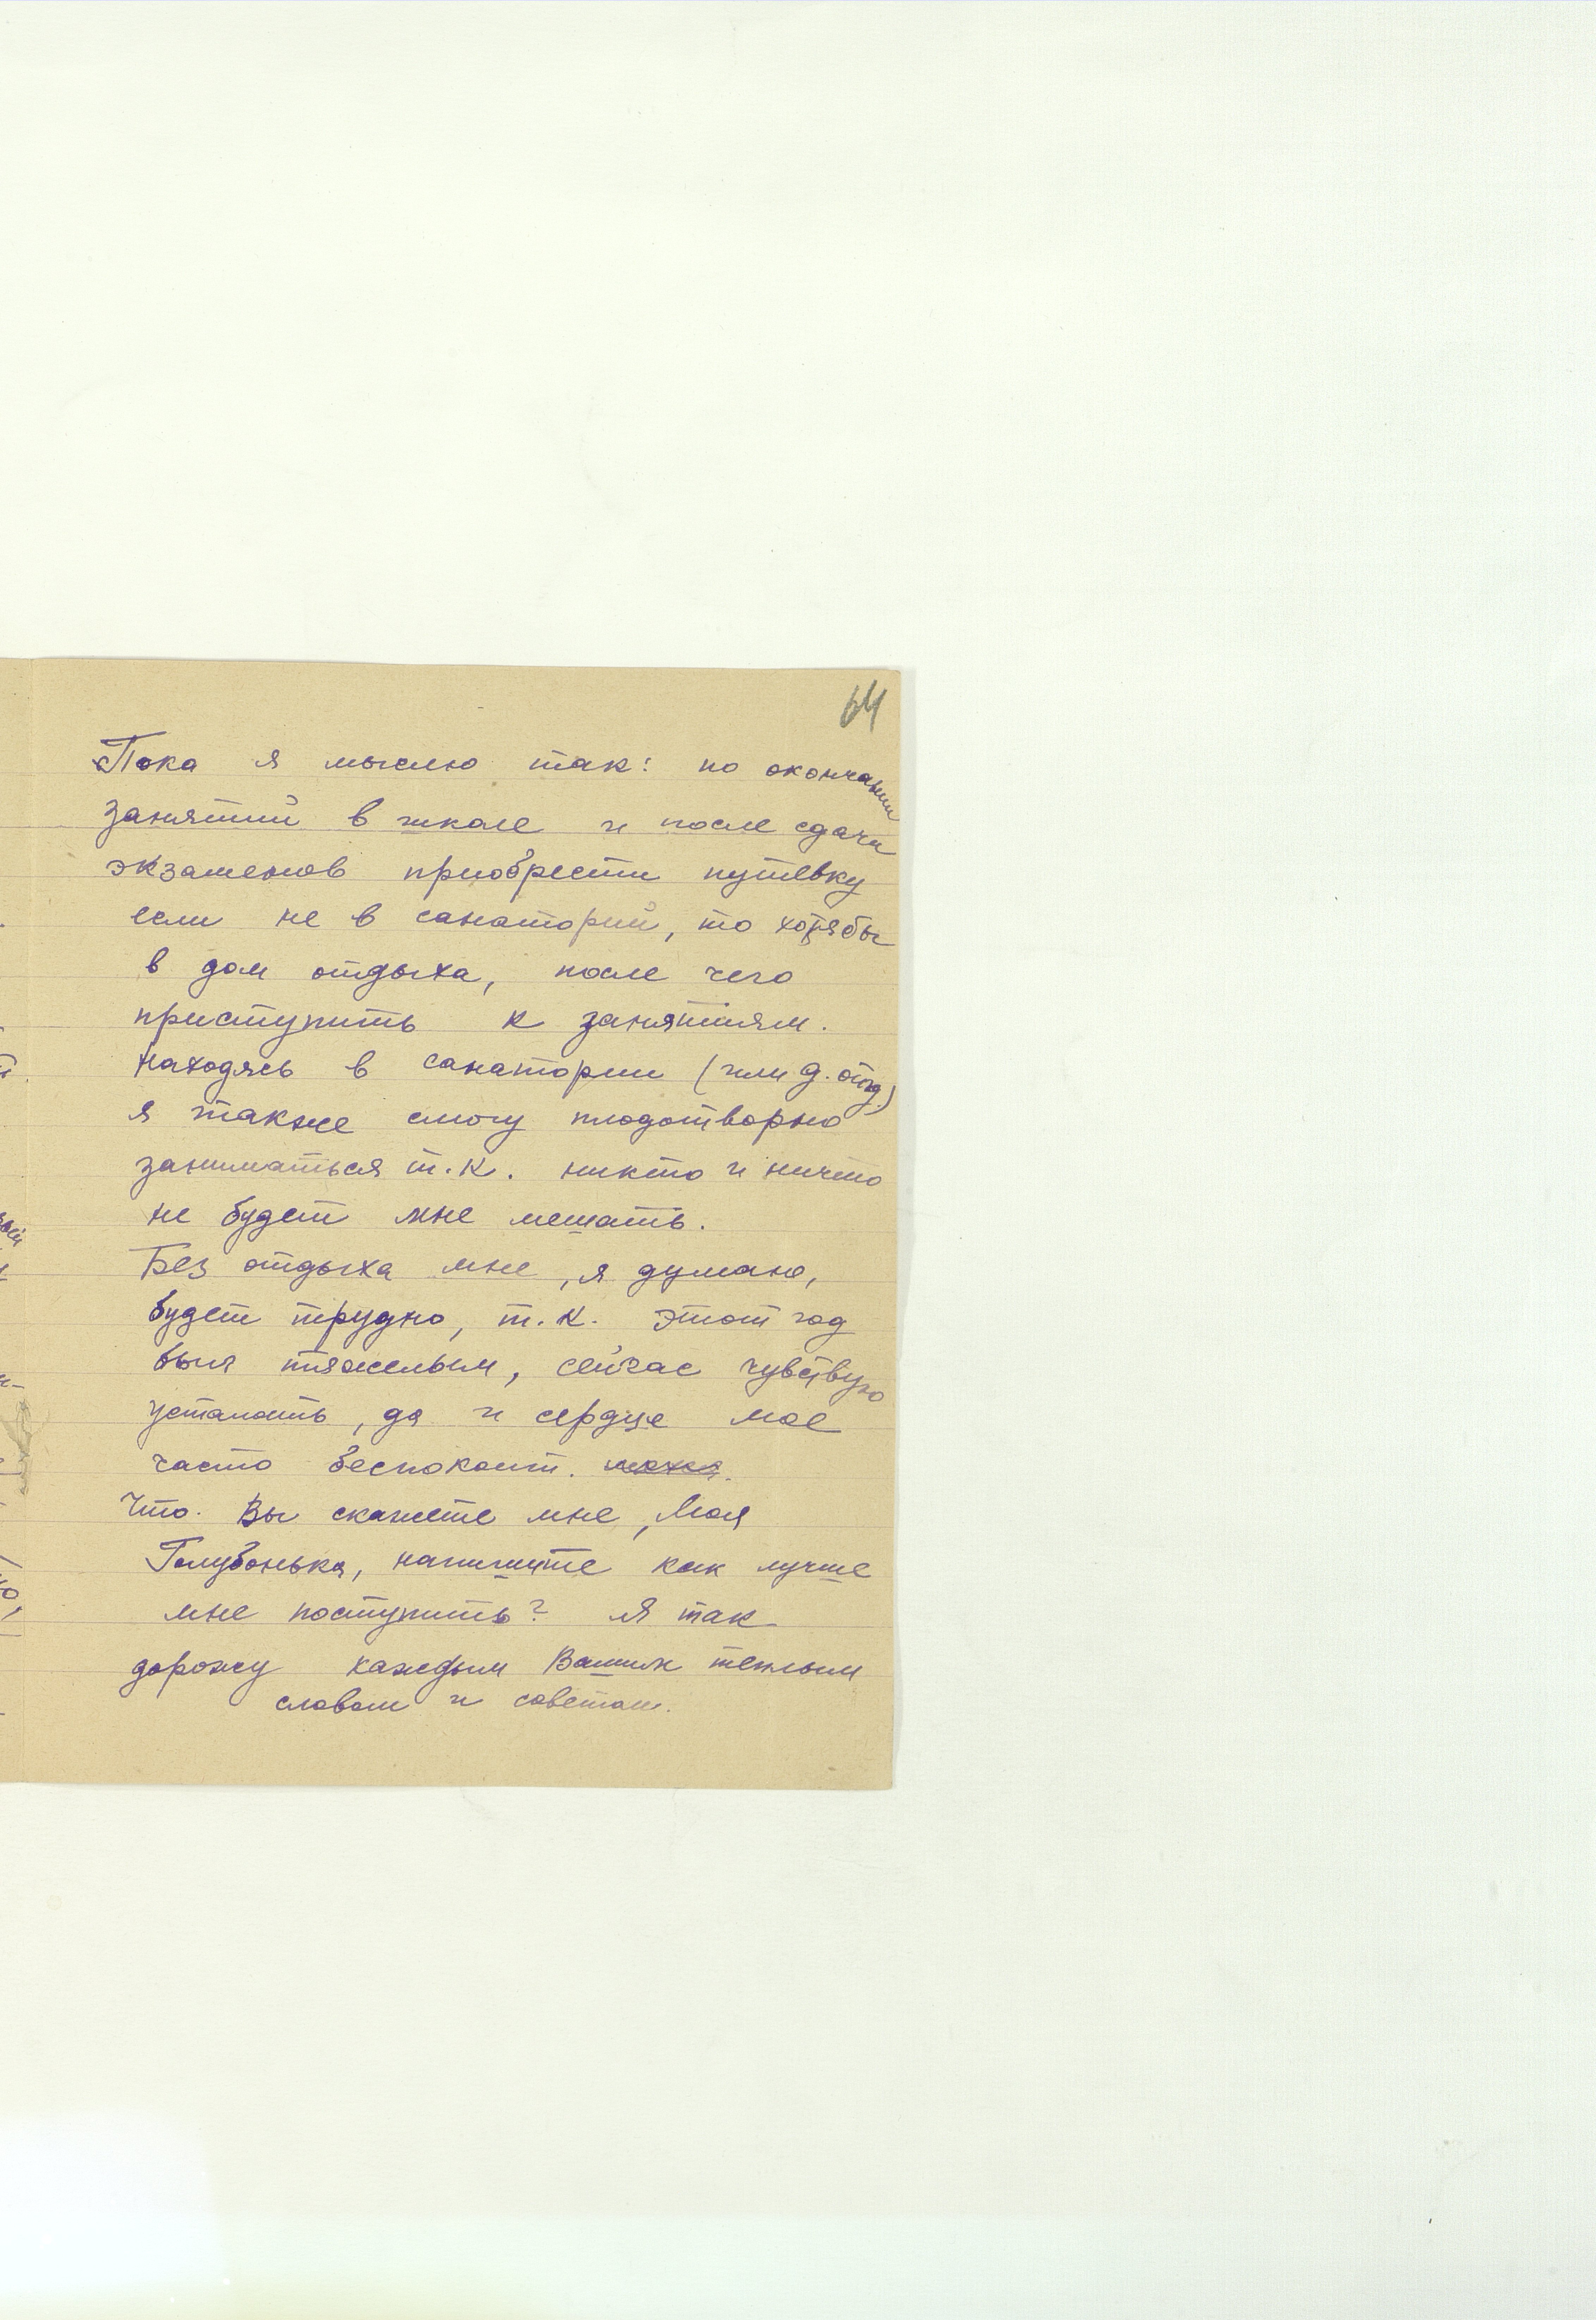 64
Пока я мыслю так: по окончании
занятий в школе и после сдачи
экзаменов приобрести путевку
если не в санаторий, то хотябы
в дом отдыха, после чего
приступить к занятиям.
Находясь в санатории (или д. отд.)
я также смогу плодотворно
заниматься т.к. никто и ничто
не будет мне мешать.
Без отдыха мне, я думаю,
будет трудно, т.к. этот год
был тяжелым, сейчас чувствую
усталость, да и сердце мое
часто беспокоит. меня.
Что. Вы скажете мне, Моя
Голубонька, напишите как лучше
мне поступить? Я так
дорожу каждым Вашим теплым
словом и советом.